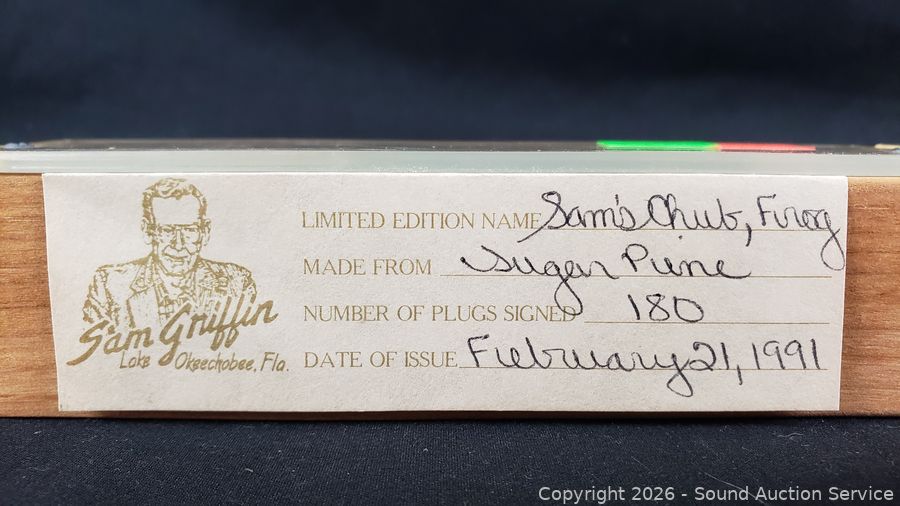 LIMITED EDITION NAME Sam's Chub, Frog
MADE FROM Sugar Pine
NUMBER OF PLUGS SIGNED 180
DATE OF ISSUE February 21, 1991
Sam Griffin
Lake Okeechobee, Fla.
Copyright 2026 - Sound Auction Service